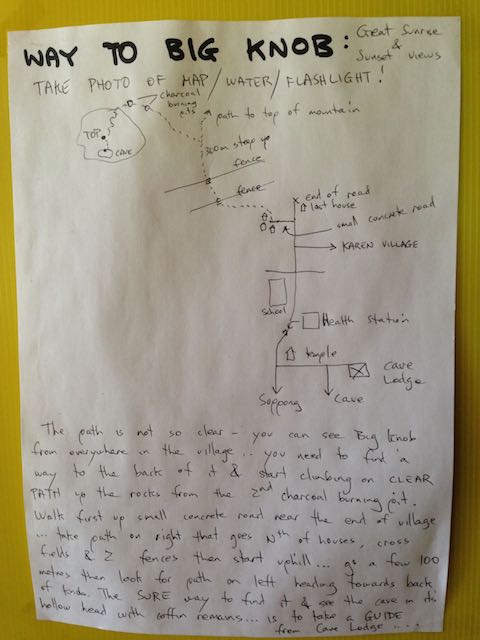 WAY TO BIG KNOB: Great Sunrise
& Sunset views
TAKE PHOTO OF MAP / WATER / FLASHLIGHT!
charcoal
burning
pits
path to top of mountain
TOP
CAVE
300m steep up
fence
fence
end of road
last house
small concrete road
KAREN VILLAGE
school
Health Station
temple
Cave
Lodge
Soppong
Cave
The path is not so clear - you can see Big Knob
from everywhere in the village .. you need to find a
way to the back of it & start climbing on CLEAR
PATH up the rocks from the 2nd charcoal burning pit.
Walk first up small concrete road near the end of village
... take path on right that goes Nth of houses, cross
fields & 2 fences then start uphill... go a few 100
metres then look for path on left heading towards back
of knob. The SURE way to find it & see the cave in it's
hollow head with coffin remains... is to take a GUIDE
from Cave Lodge ....